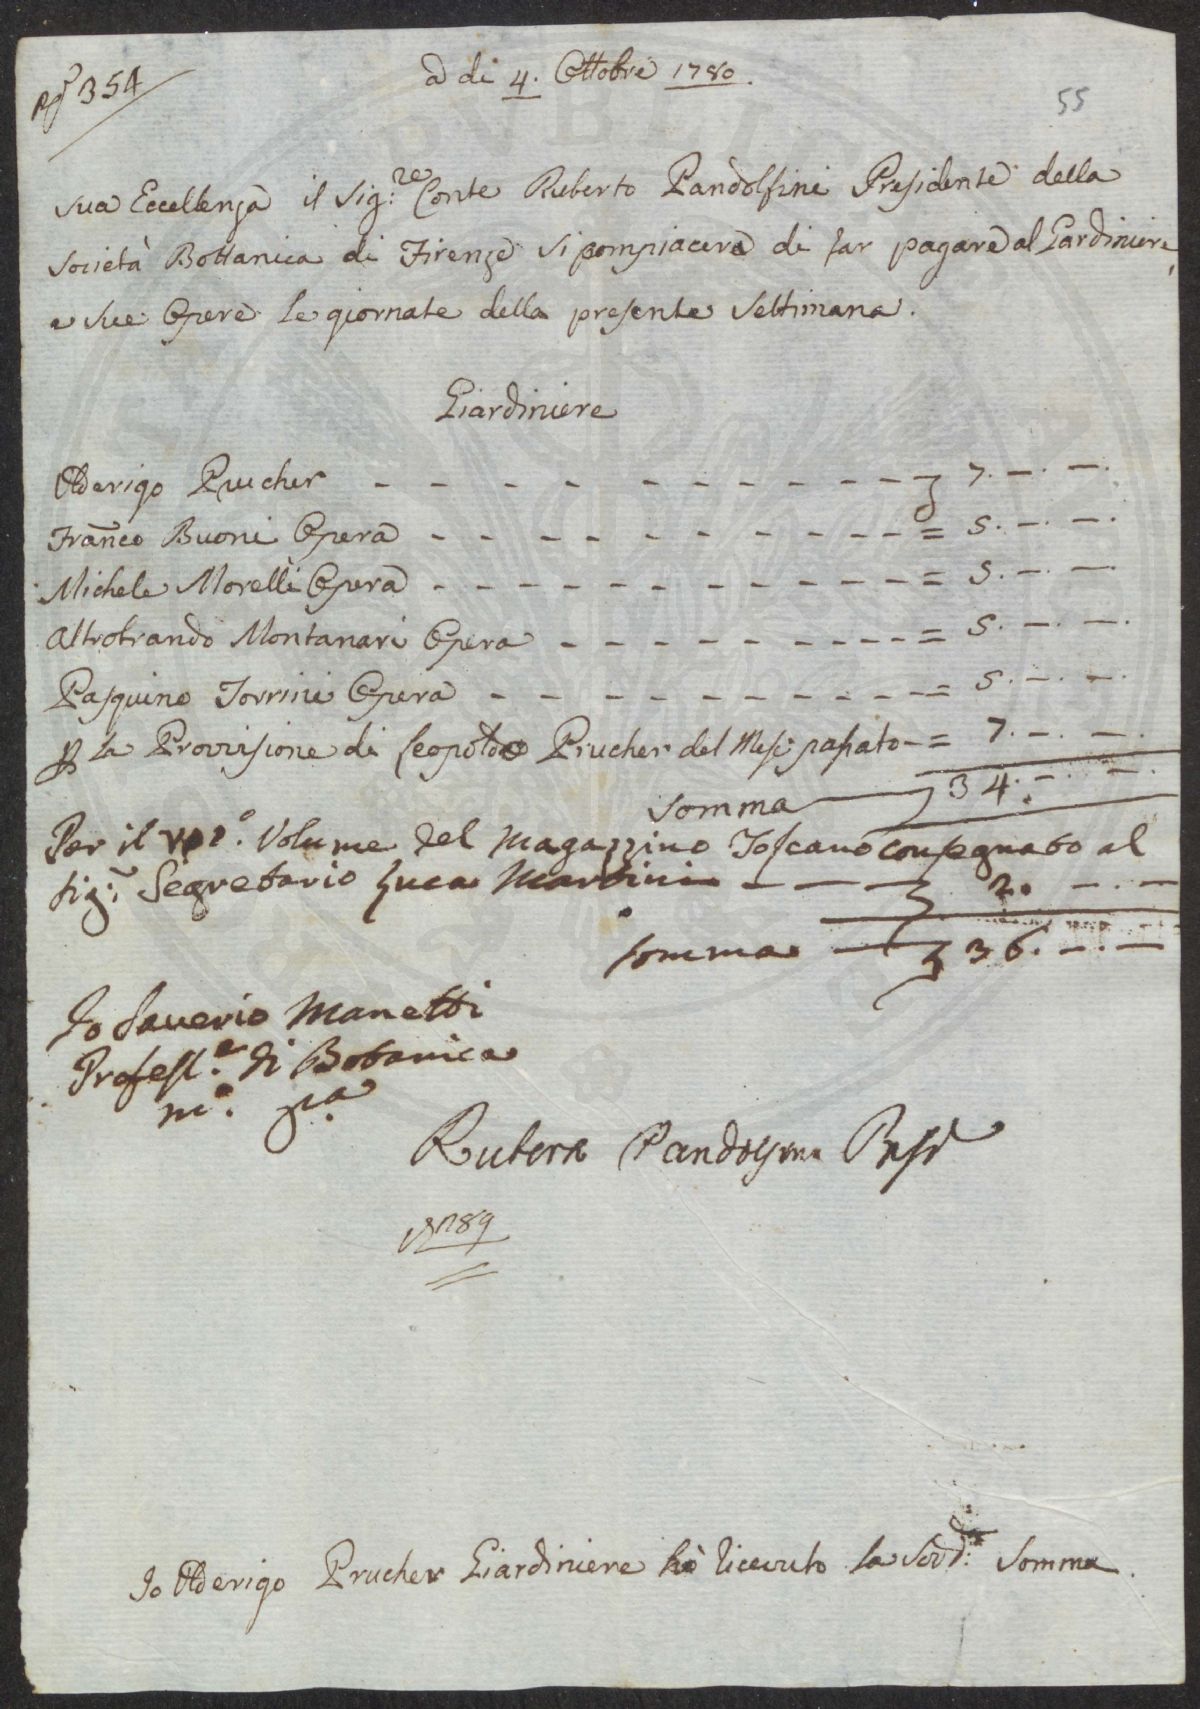 354
a di 4. Ottobre 1780.
55
Sua Eccellenza il Sig:re Conte Ruberto Pandolfini Presidente della
Società Bottanica di Firenze si compiacerà di far pagare al Gardiniere
e sue Opere le giornate della presente Settimana.
Giardiniere
Olderigo Prucher - - - - - - - - - - - £ 7. -. -.
Franco Buoni Opera - - - - - - - - - - = 5. -. -.
Michele Morelli Opera - - - - - - - - - - = 5. -. -.
Altrobrando Montanari Opera - - - - - - - - = 5. -. -.
Pasquino Torrini Opera - - - - - - - - - = 5. -. -.
P la Provvisione di Leopoldo Prucher del Mese passato - = 7. -. -.
Somma £ 34. -. -.
Per il Volume del Magazzino Toscano consegnato al
Sig:r Segretario Luca Martini - - - £ 2. -. -
Somma - £ 36. -. -
Io Saverio Manetti
Profess.e di Botanica
m.o pa
Ruberto Pandolfini Presid
1789
Io Olderigo Prucher Giardiniere hò ricevuto la Sudd:a Somma.